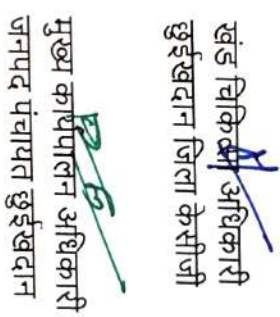 खंड चिकित्सा अधिकारी
छुईखदान जिला केसीजी
मुख्य कार्यपालन अधिकारी
जनपद पंचायत छुईखदान